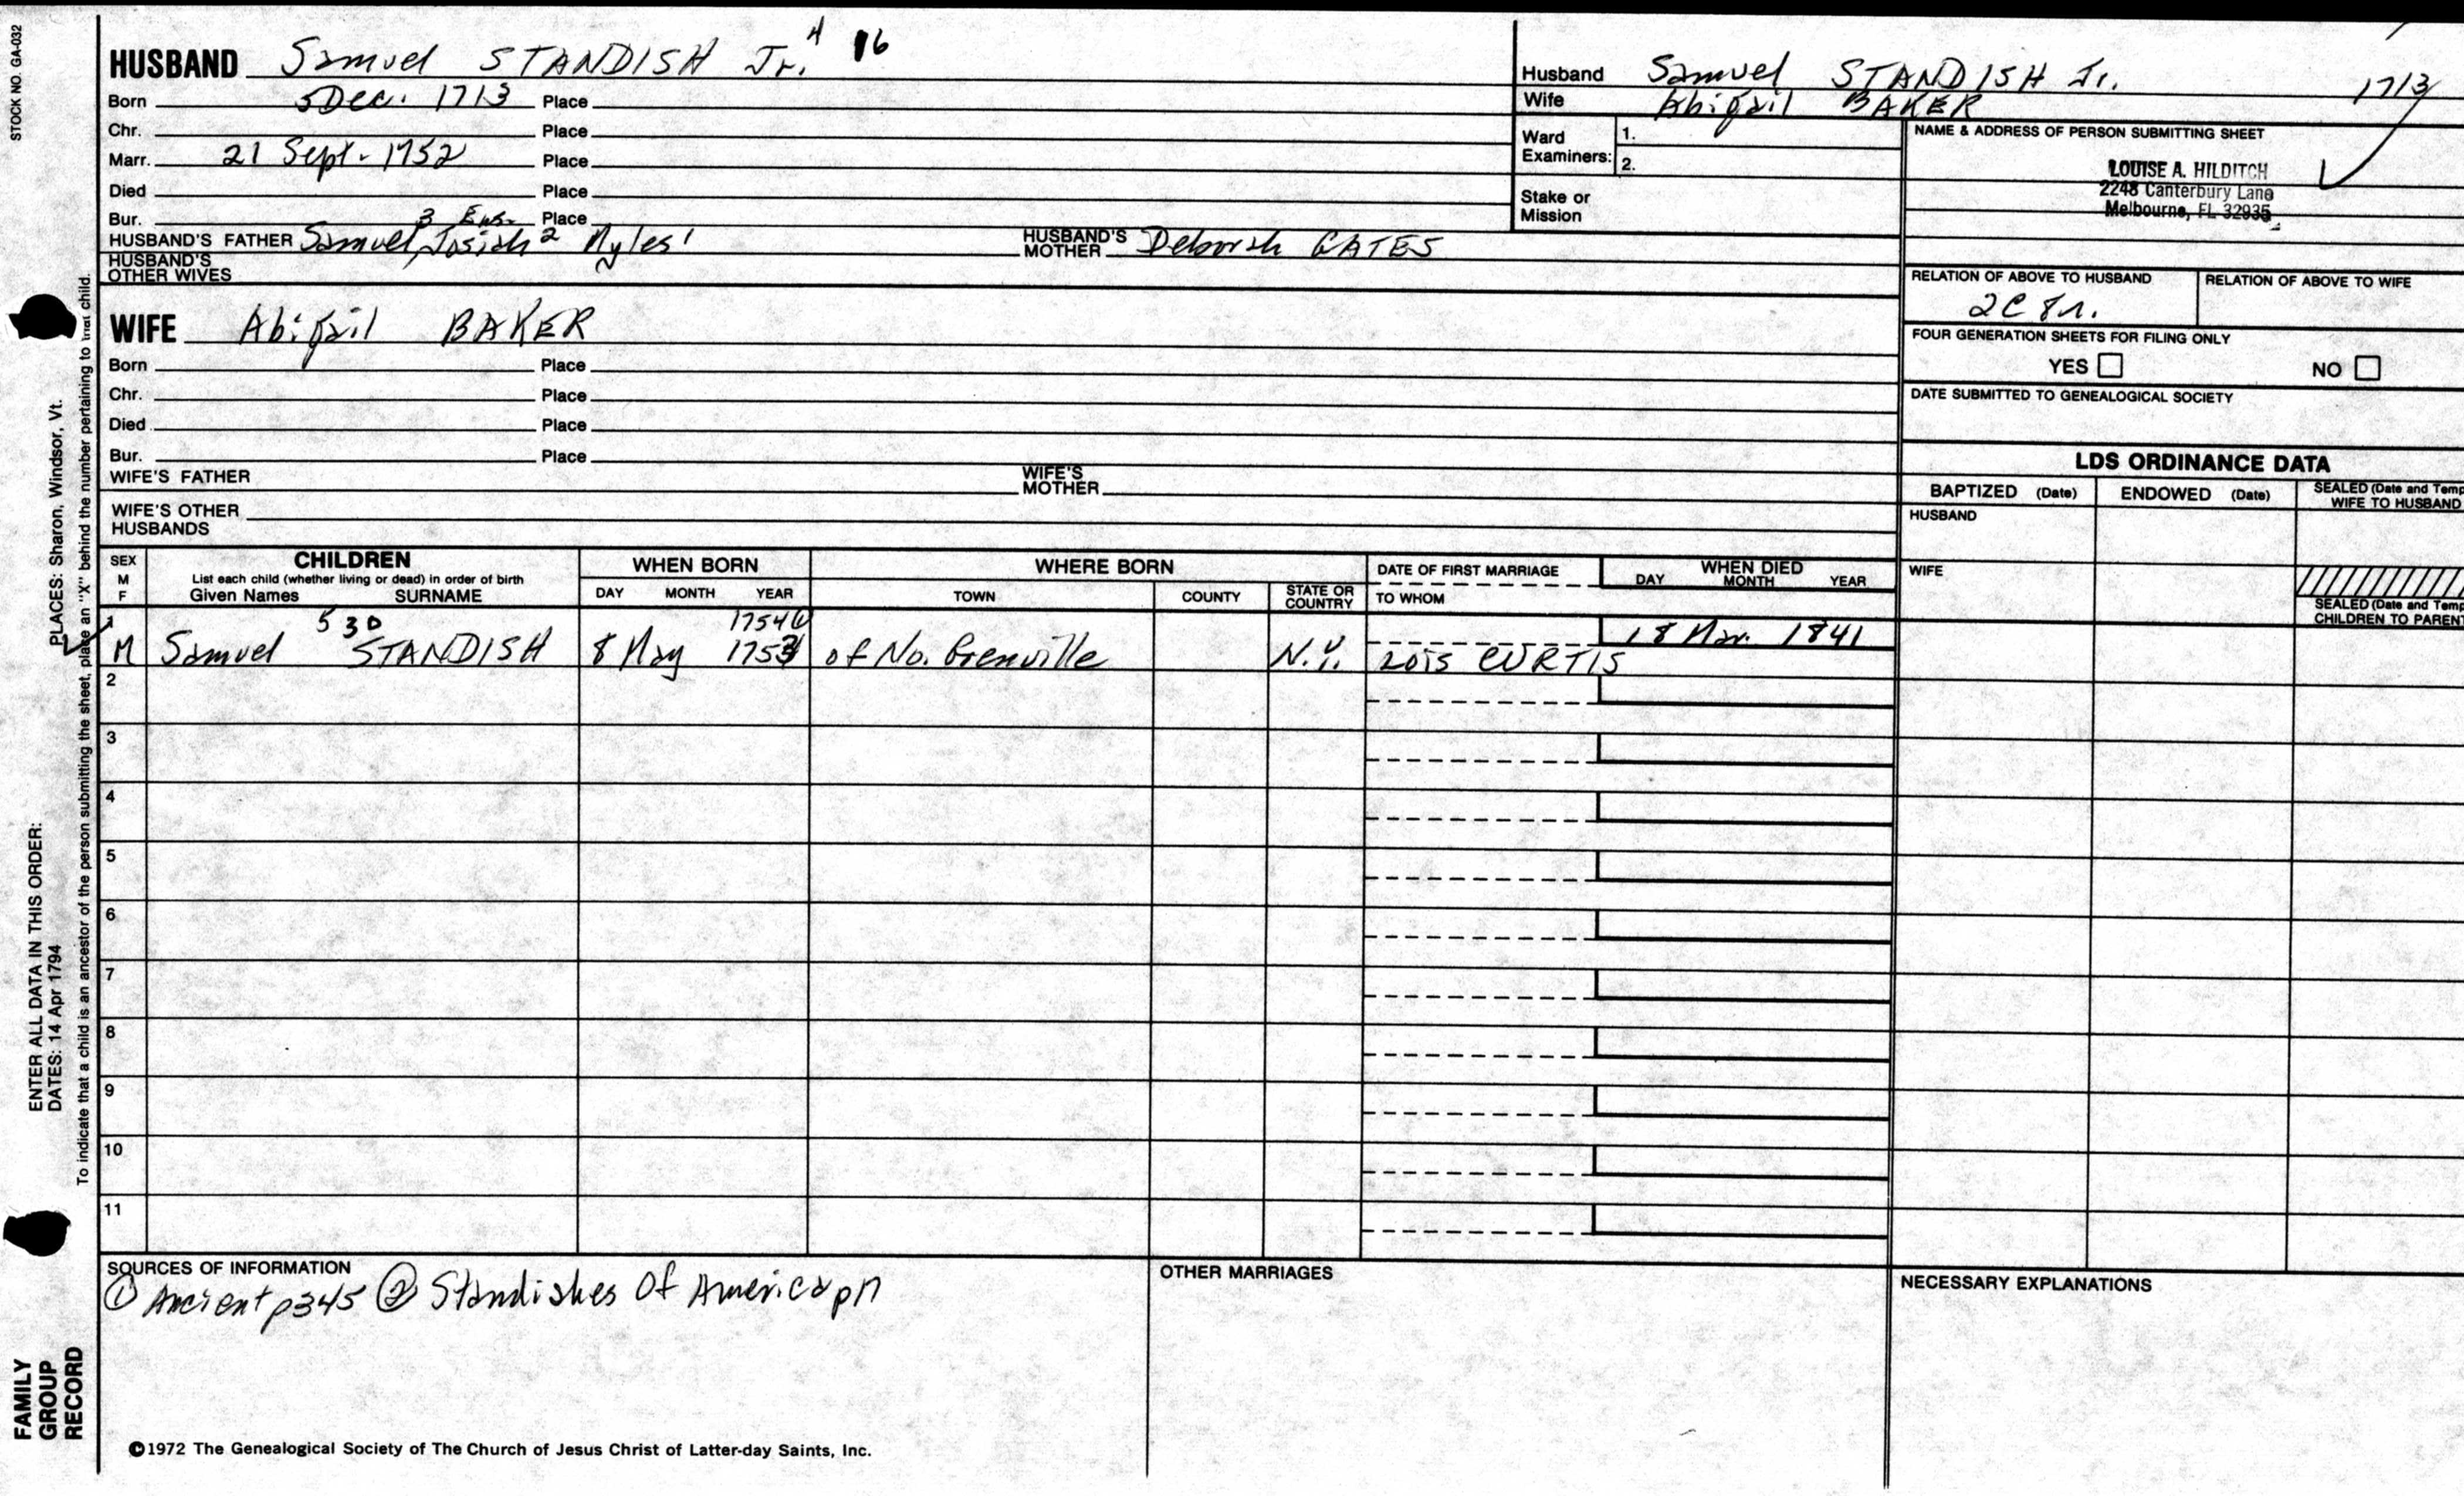 STOCK NO. GA-032
HUSBAND Samuel STANDISH Jr. 4 16
Born 5 Dec. 1713 Place
Chr. Place
Marr. 21 Sept. 1752 Place
Died Place
Bur. Place
3 Ens.
HUSBAND'S FATHER Samuel, Josiah 2 Myles 1 HUSBAND'S MOTHER Deborah GATES
HUSBAND'S OTHER WIVES
WIFE Abigail BAKER
Born Place
Chr. Place
Died Place
Bur. Place
WIFE'S FATHER WIFE'S MOTHER
WIFE'S OTHER HUSBANDS
Husband Samuel STANDISH Jr. 1713
Wife Abigail BAKER
Ward Examiners: 1.
2.
Stake or Mission
NAME & ADDRESS OF PERSON SUBMITTING SHEET
LOUISE A. HILDITCH
2248 Canterbury Lane
Melbourne, FL 32935
RELATION OF ABOVE TO HUSBAND RELATION OF ABOVE TO WIFE
2C 8r.
FOUR GENERATION SHEETS FOR FILING ONLY
YES NO
DATE SUBMITTED TO GENEALOGICAL SOCIETY
LDS ORDINANCE DATA
BAPTIZED (Date) ENDOWED (Date) SEALED (Date and Temp
WIFE TO HUSBAND
HUSBAND
WIFE
SEALED (Date and Temp
CHILDREN TO PARENT
SEX M F
CHILDREN
List each child (whether living or dead) in order of birth
Given Names SURNAME
WHEN BORN
DAY MONTH YEAR
WHERE BORN
TOWN COUNTY STATE OR COUNTRY
DATE OF FIRST MARRIAGE
TO WHOM
WHEN DIED
DAY MONTH YEAR
1 530 1754 ①
M Samuel STANDISH 8 May 1753 of No. Grenville N.Y. Lois CURTIS 18 Mar. 1841
2
3
4
5
6
7
8
9
10
11
SOURCES OF INFORMATION
① Ancient p345 ② Standishes Of America p17
OTHER MARRIAGES
NECESSARY EXPLANATIONS
©1972 The Genealogical Society of The Church of Jesus Christ of Latter-day Saints, Inc.
FAMILY GROUP RECORD
ENTER ALL DATA IN THIS ORDER:
DATES: 14 Apr 1794 PLACES: Sharon, Windsor, Vt.
To indicate that a child is an ancestor of the person submitting the sheet, place an "X" behind the number pertaining to that child.